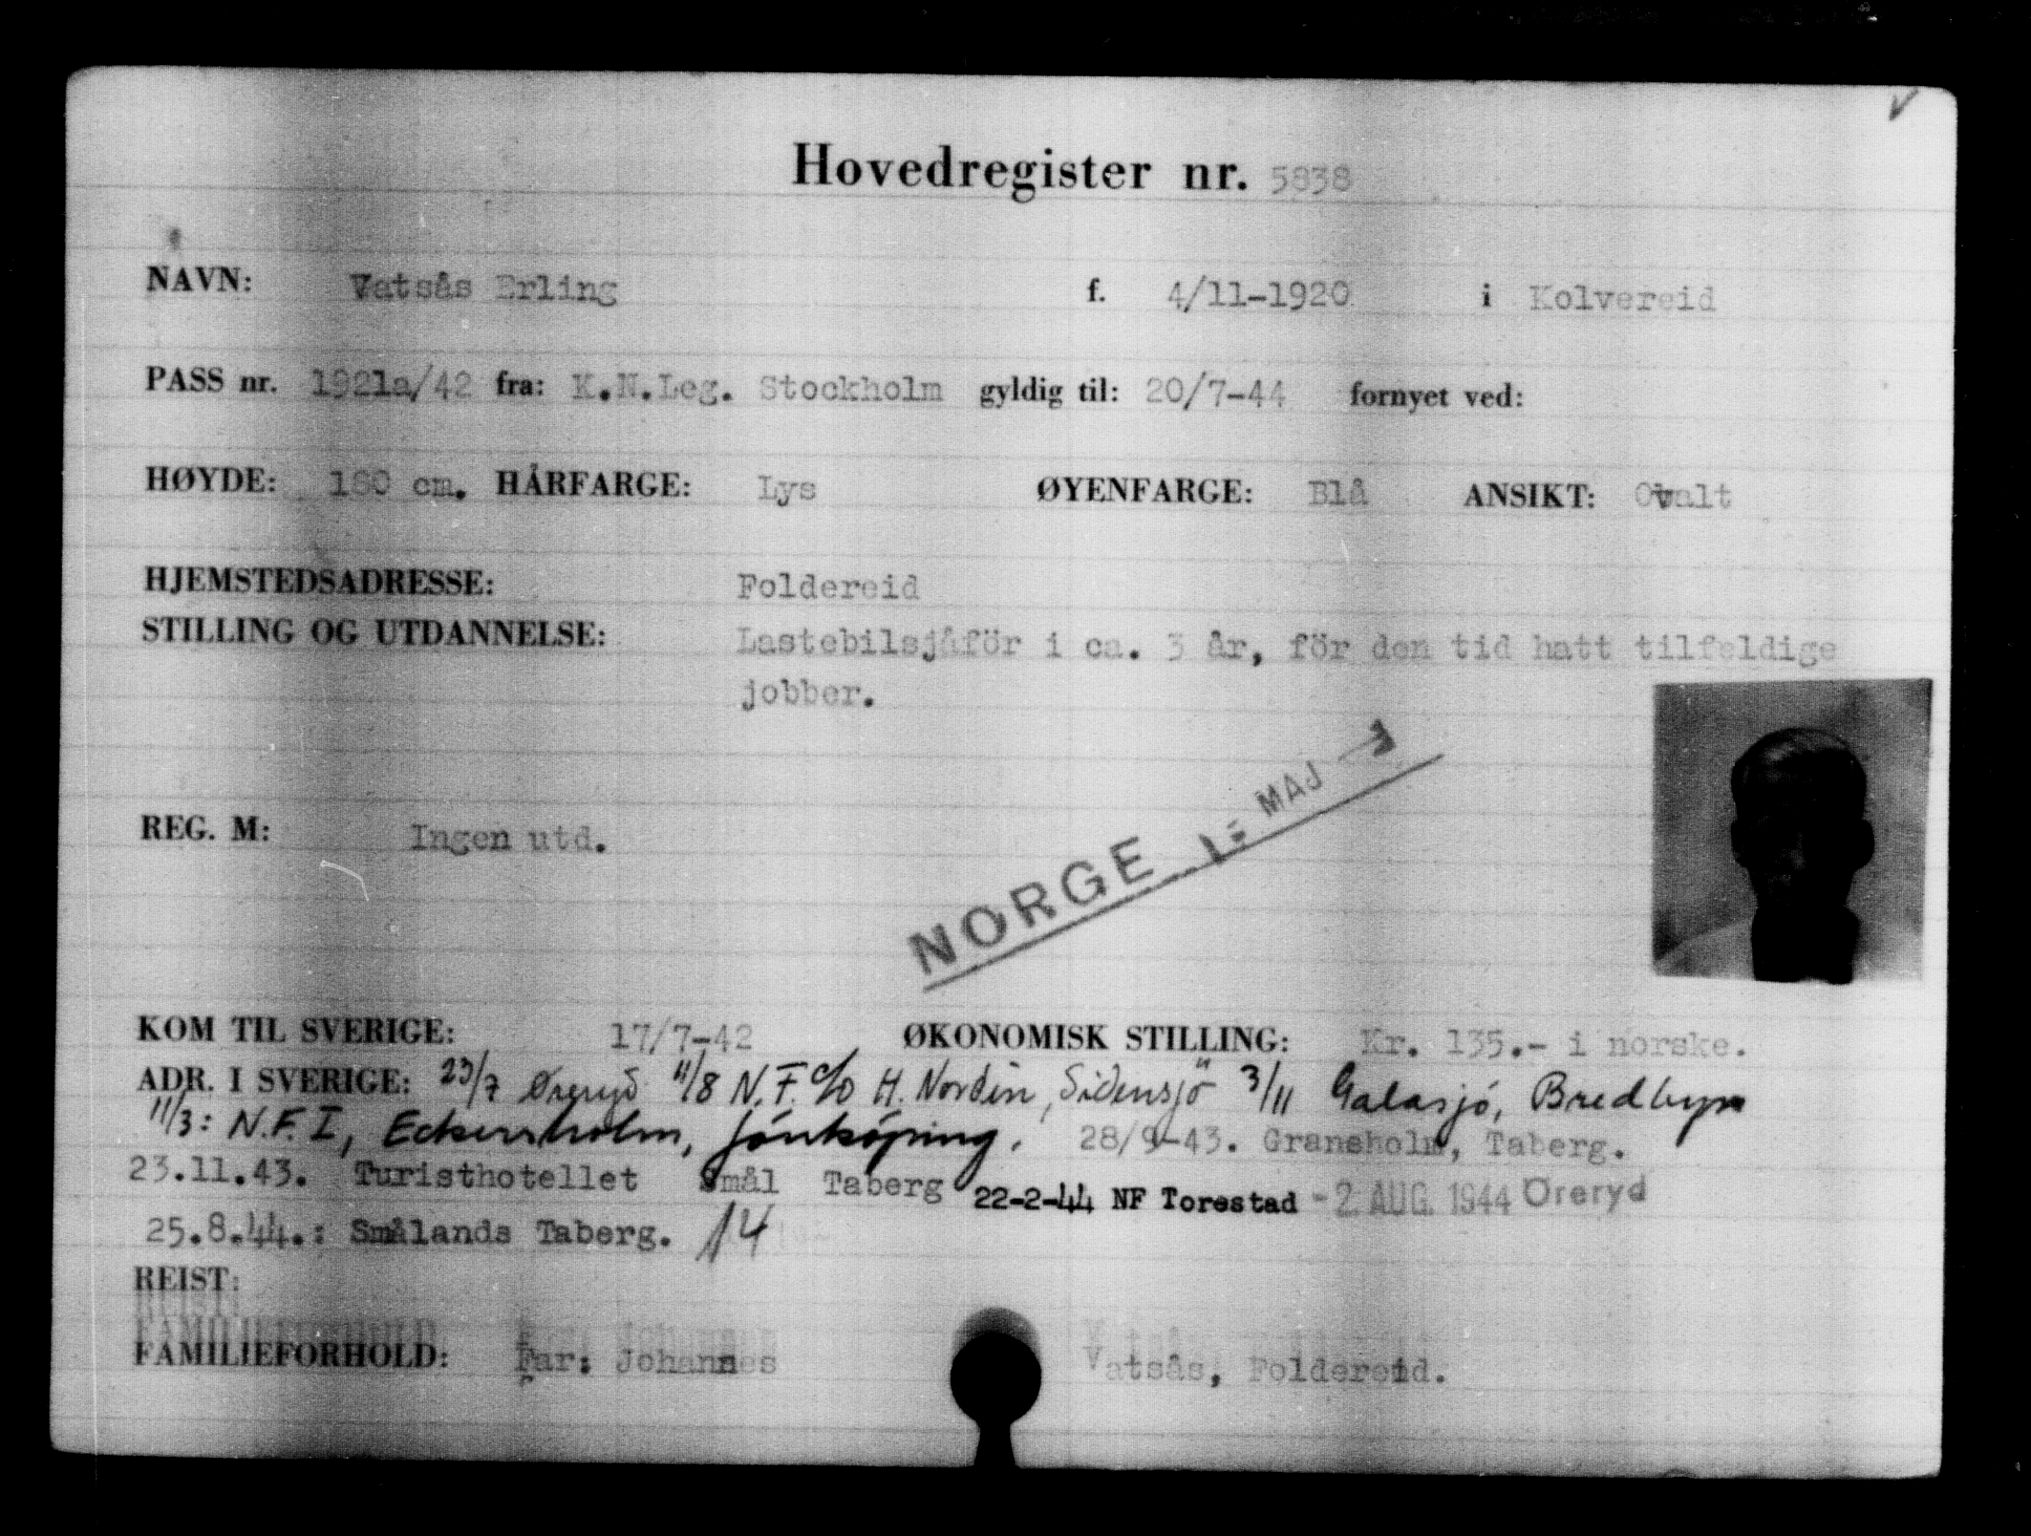 Hovedregister nr. 5838
NAVN: Vatsås Erling f. 4/11-1920 i Kolvereid
PASS nr. 1921a/42 fra: K.N.Leg. Stockholm gyldig til: 20/7-44 fornyet ved:
HØYDE: 180 cm. HÅRFARGE: Lys ØYENFARGE: Blå ANSIKT: Ovalt
HJEMSTEDSADRESSE: Foldereid
STILLING OG UTDANNELSE: Lastebilsjåför i ca. 3 år, för den tid hatt tilfeldige
jobber.
REG. M: Ingen utd.
NORGE 1 MAJ
KOM TIL SVERIGE: 17/7-42 ØKONOMISK STILLING: Kr. 135.- i norske.
ADR. I SVERIGE: 23/7 Øreryd 11/8 N.F. c/o H. Nordin, Sidensjö 3/11 Galasjö, Bredbyn
11/3: N.F.I, Eckersholm, Jönköping. 28/9-43. Gransholm, Taberg.
23.11.43. Turisthotellet Smål Taberg 22-2-44 NF Torestad -2 AUG. 1944 Öreryd
25.8.44.: Smålands Taberg. 14
REIST:
FAMILIEFORHOLD: Far: Johannes Vatsås, Foldereid.